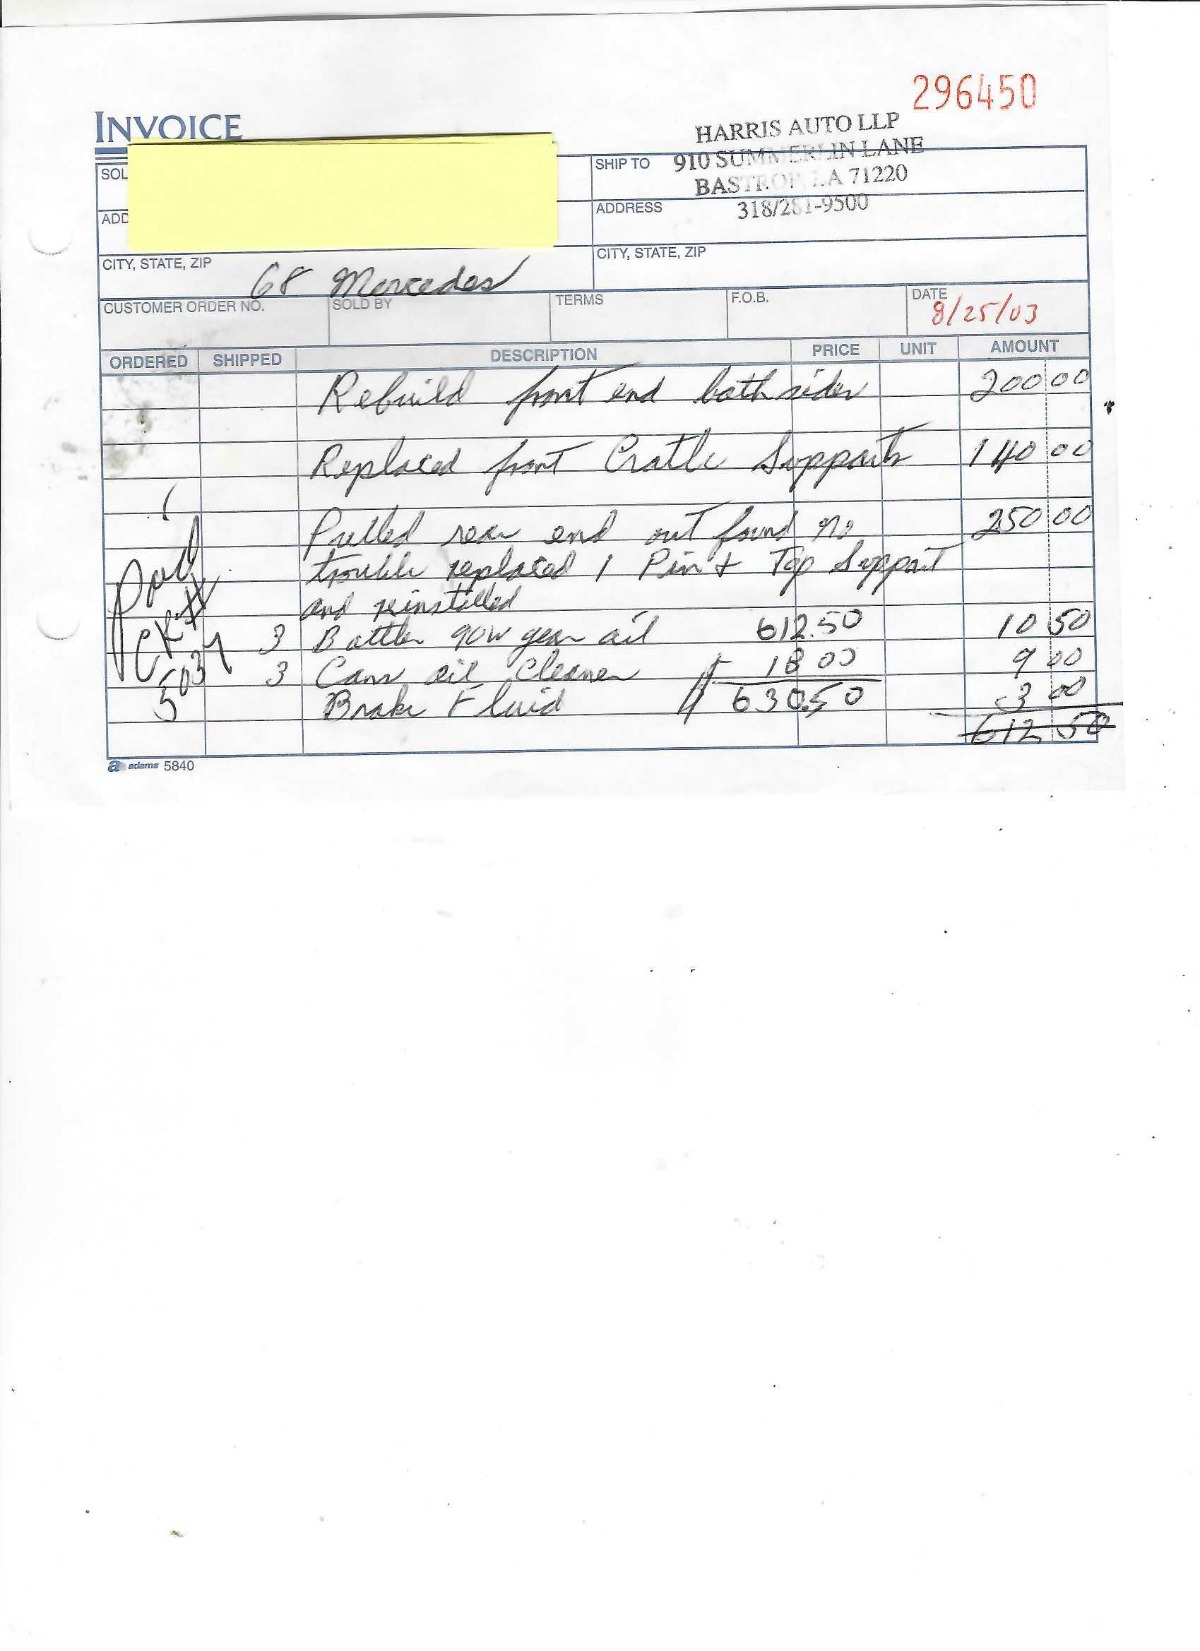 296450
INVOICE
HARRIS AUTO LLP
SHIP TO 910 SUMMERLIN LANE
SOL
BASTROP LA 71220
ADD
ADDRESS 318/281-9500
CITY, STATE, ZIP
CITY, STATE, ZIP
68 Mercedes
CUSTOMER ORDER NO. SOLD BY TERMS F.O.B. DATE 8/25/03
ORDERED SHIPPED DESCRIPTION PRICE UNIT AMOUNT
Rebuild front end both sides 200 00
Replaced front Cratle Supports 140 00
Pulled rear end out found no 250 00
trouble replaced 1 Pin + Top Support
and reinstalled
Paid
CK#
5037
3 Bottles 90w gear oil 612.50 10 50
3 Cans oil Cleaner 18 00 9 00
Brake Fluid $ 630.50 3 00
612 50
adams 5840